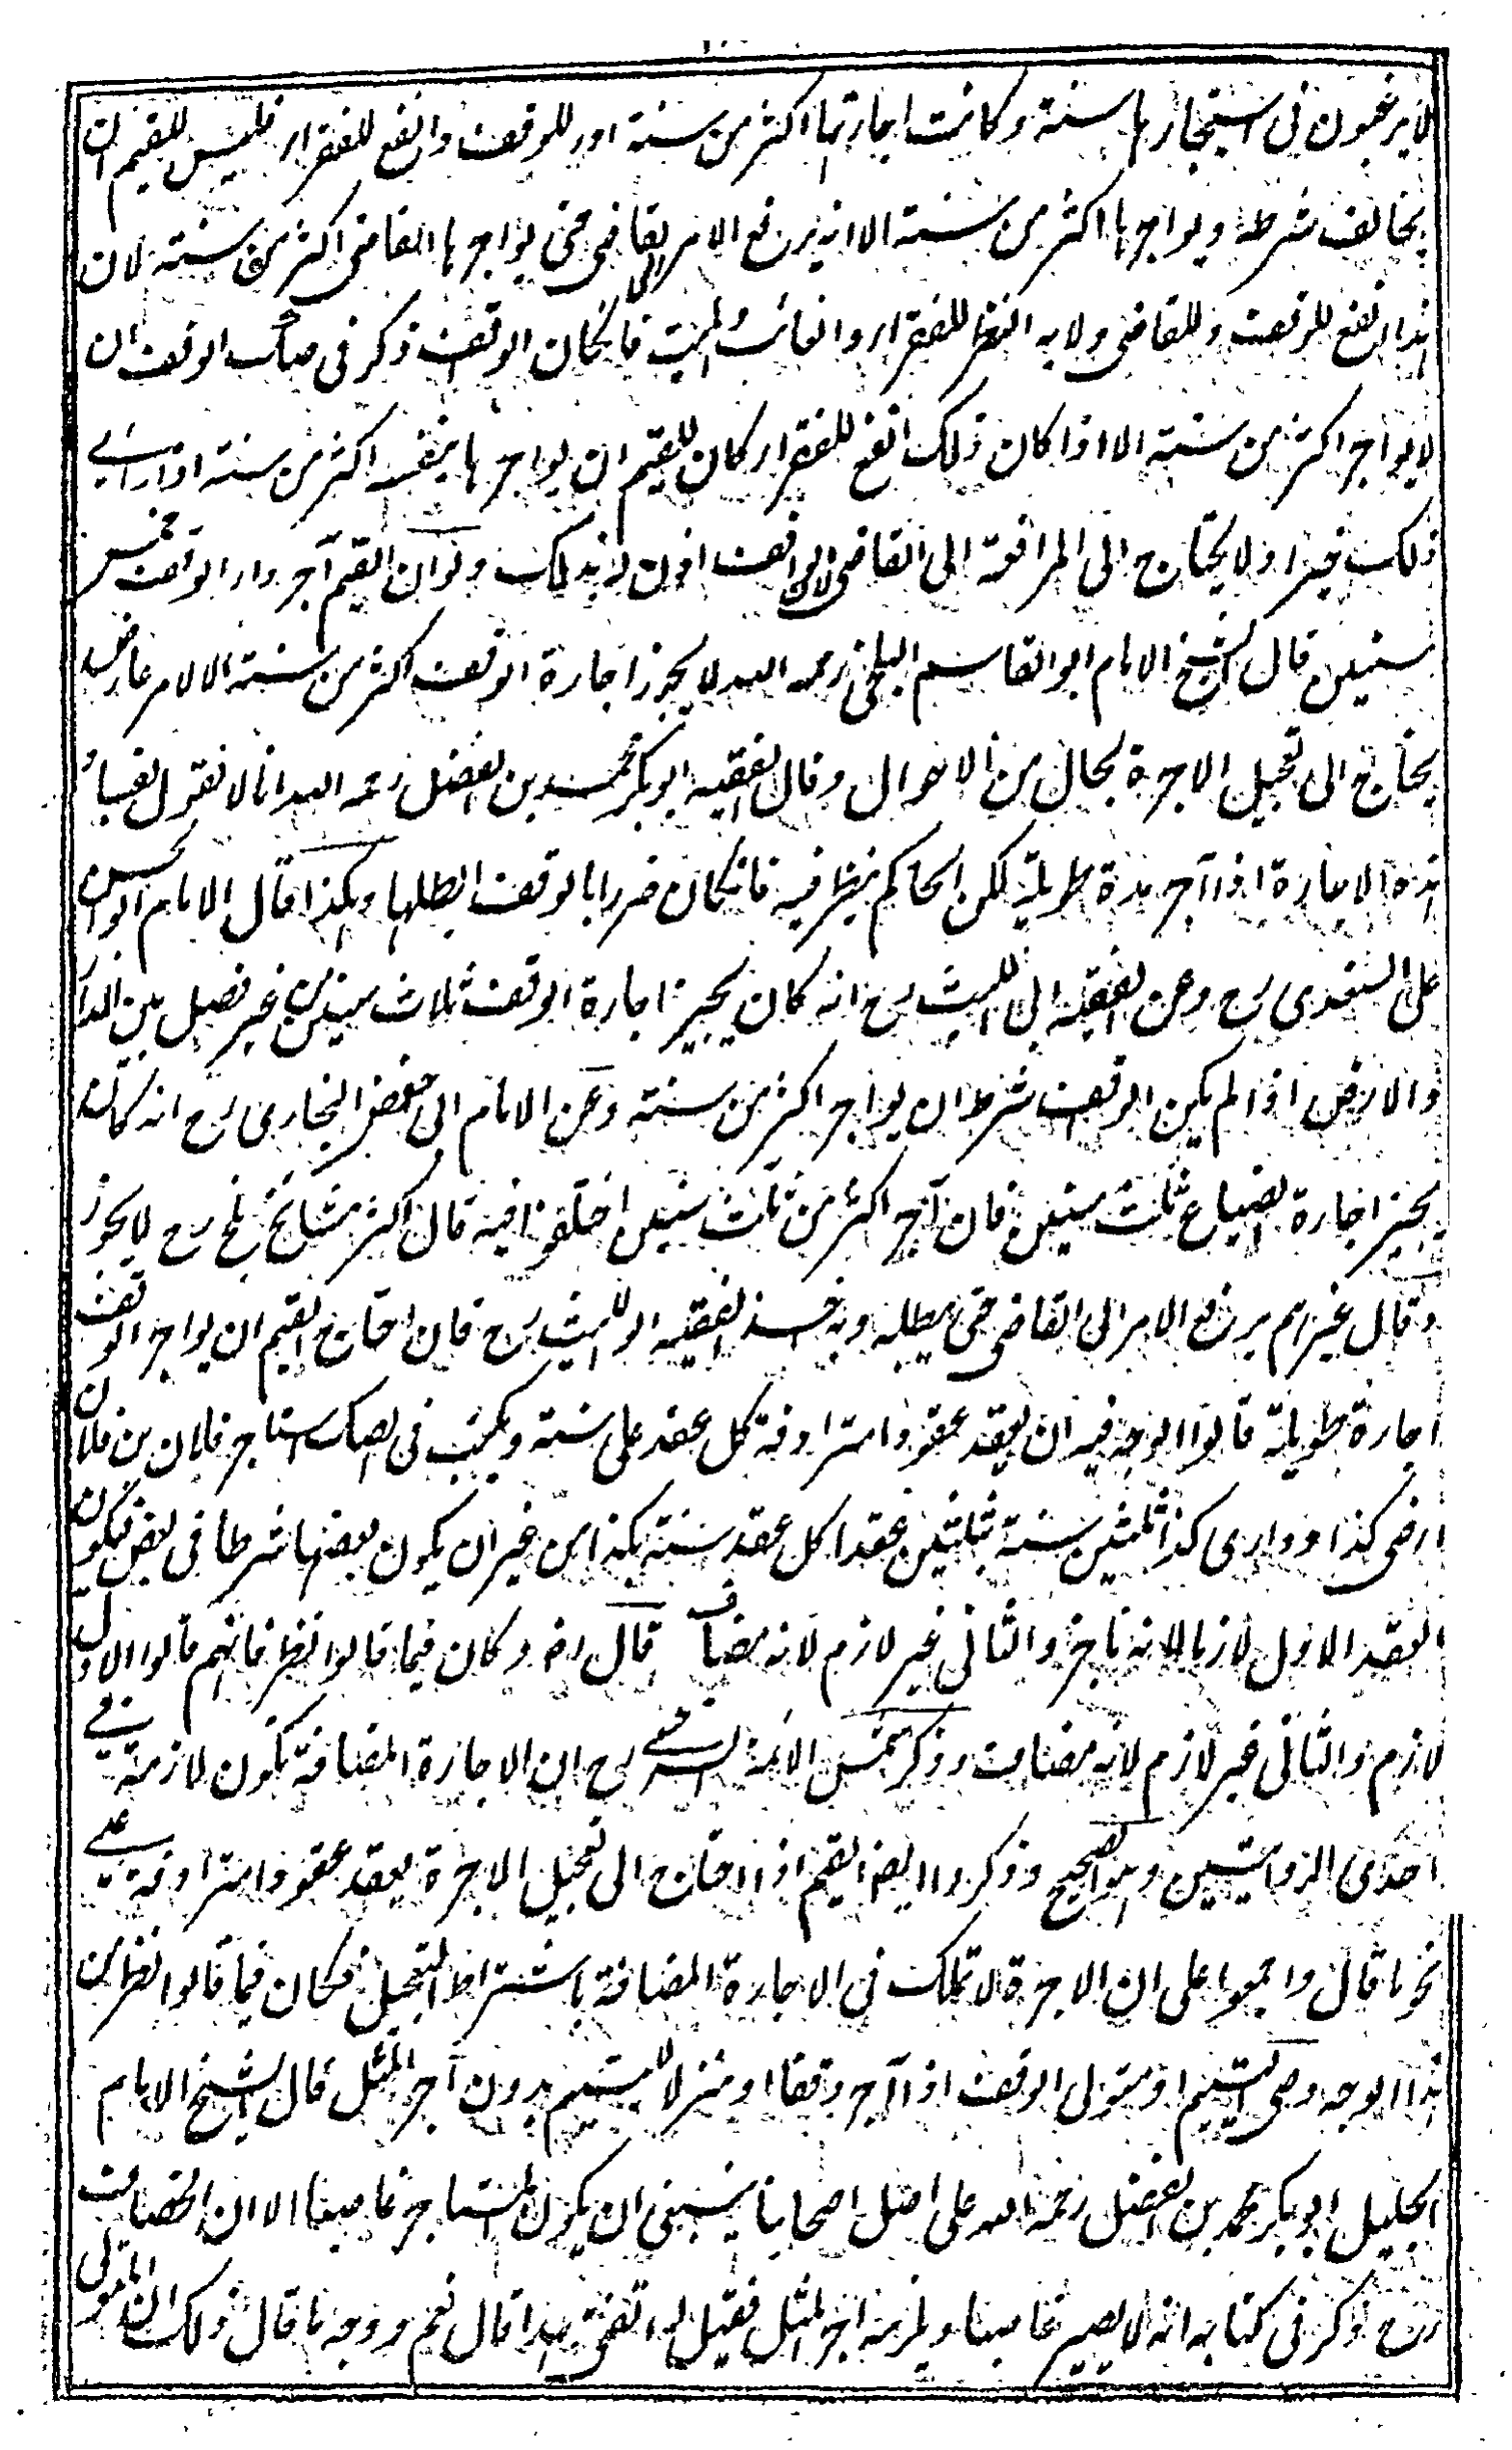 لا يرغبون فى استيجارها سنة وكانت اجارتها اكثر من سنة ادر للوقف وانفع للفقراء فليس للقيم ان
يخالف شرطه ويواجرها اكثر من سنة الا انه يرفع الامر الى القاضى حتى يواجرها القاضى اكثر من سنة لان
هذا انفع للوقف وللقاضى ولاية النظر للفقراء والغائب والميت فانكان الوقف ذكر فى صك الوقف ان
لا يواجر اكثر من سنة الا اذا كان ذلك انفع للفقراء كان للقيم ان يواجرها بنفسه اكثر من سنة اذا رأى
ذلك خيرا ولا يحتاج الى المرافعة الى القاضى لان الواقف اذن له بذلك ولو ان القيم آجر دار الوقف خمس
سنين قال الشيخ الامام ابو القاسم البلخى رحمه الله لا يجوز اجارة الوقف اكثر من سنة الا لامر عارض
يحتاج الى تعجيل الاجرة بحال من الاحوال وقال الفقيه ابو بكر محمد بن الفضل رحمه الله انا لا نقول بفساد
هذه الاجارة اذا آجر مدة طويلة لكن الحاكم ينظر فيه فانكان ضررا بالوقف ابطلها وهكذا قال الامام ابو الحسن
على السغدى رح وعن الفقيه ابى الليث رح انه كان يجيز اجارة الوقف ثلاث سنين من غير فصل بين الدار
والارض اذا لم يكن الوقف شرط ان يواجر اكثر من سنة وعن الامام ابى حفص البخارى رح انه كان
يجيز اجارة الضياع ثلث سنين فان آجر اكثر من ثلث سنين اختلفوا فيه قال اكثر مشائخ بلخ رح لا يجوز
وقال غيرهم يرفع الامر الى القاضى حتى يبطله وبه اخذ الفقيه ابو الليث رح فان احتاج القيم ان يواجر الوقف
اجارة طويلة قالوا الوجه فيه ان يعقد عقودا مترادفة كل عقد على سنة ويكتب فى الصك استاجر فلان بن فلان
ارضى كذا او دارى كذا ثلثين سنة بثلثين عقدا كل عقد سنة بكذا من غير ان يكون بعضها شرطا فى بعض فيكون
العقد الاول لازما لانه ناجز والثانى غير لازم لانه مضاف قال رضـ وكان فيما قالوا نظر فانهم قالوا الاول
لازم والثانى غير لازم لانه مضاف وذكر شمس الائمة السرخسى رح ان الاجارة المضافة تكون لازمة فى
احدى الروايتين وهو الصحيح وذكروا ايضا القيم اذا احتاج الى تعجيل الاجرة يعقد عقودا مترادفة على
نحو ما قال واجمعوا على ان الاجرة لا تملك فى الاجارة المضافة باشتراط التعجيل فكان فيما قالوا نظر من
هذا الوجه وصى اليتيم او متولى الوقف اذا آجر وقفا او منزلا لليتيم بدون آجر المثل قال الشيخ الامام
الجليل ابو بكر محمد بن الفضل رحمه الله على اصل اصحابنا ينبغى ان يكون المستاجر غاصبا الا ان الخصاف
رح ذكر فى كتابه انه لا يصير غاصبا ويلزمه اجر المثل فقيل له اتفتى بهذا قال نعم ووجه ما قال ذلك ان المتولى